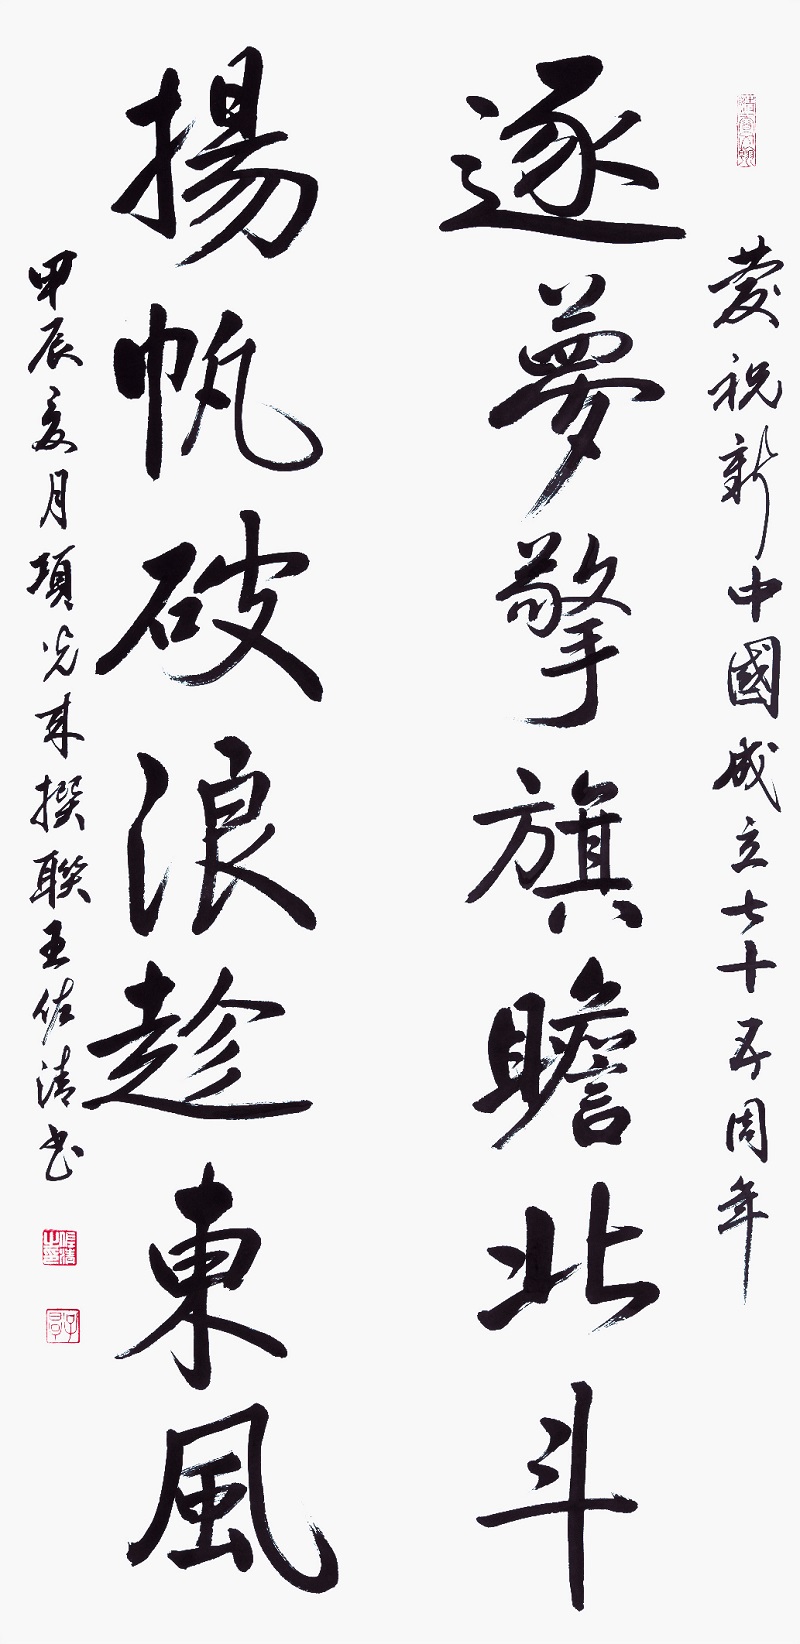 慶祝新中國成立七十五周年
逐夢擎旗瞻北斗
揚帆破浪趁東風
甲辰夏月項光来撰聯王佐清书